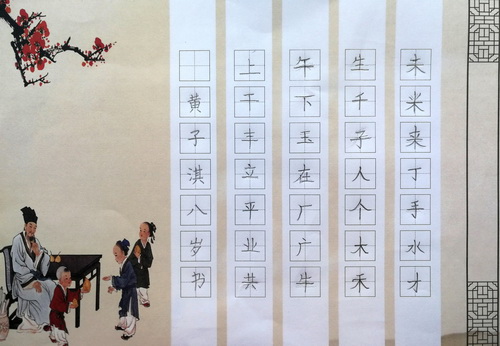 未米来丁手水才
生千子人个木禾
午下玉在厂广牛
上干丰立平业共
黄子淇八岁书